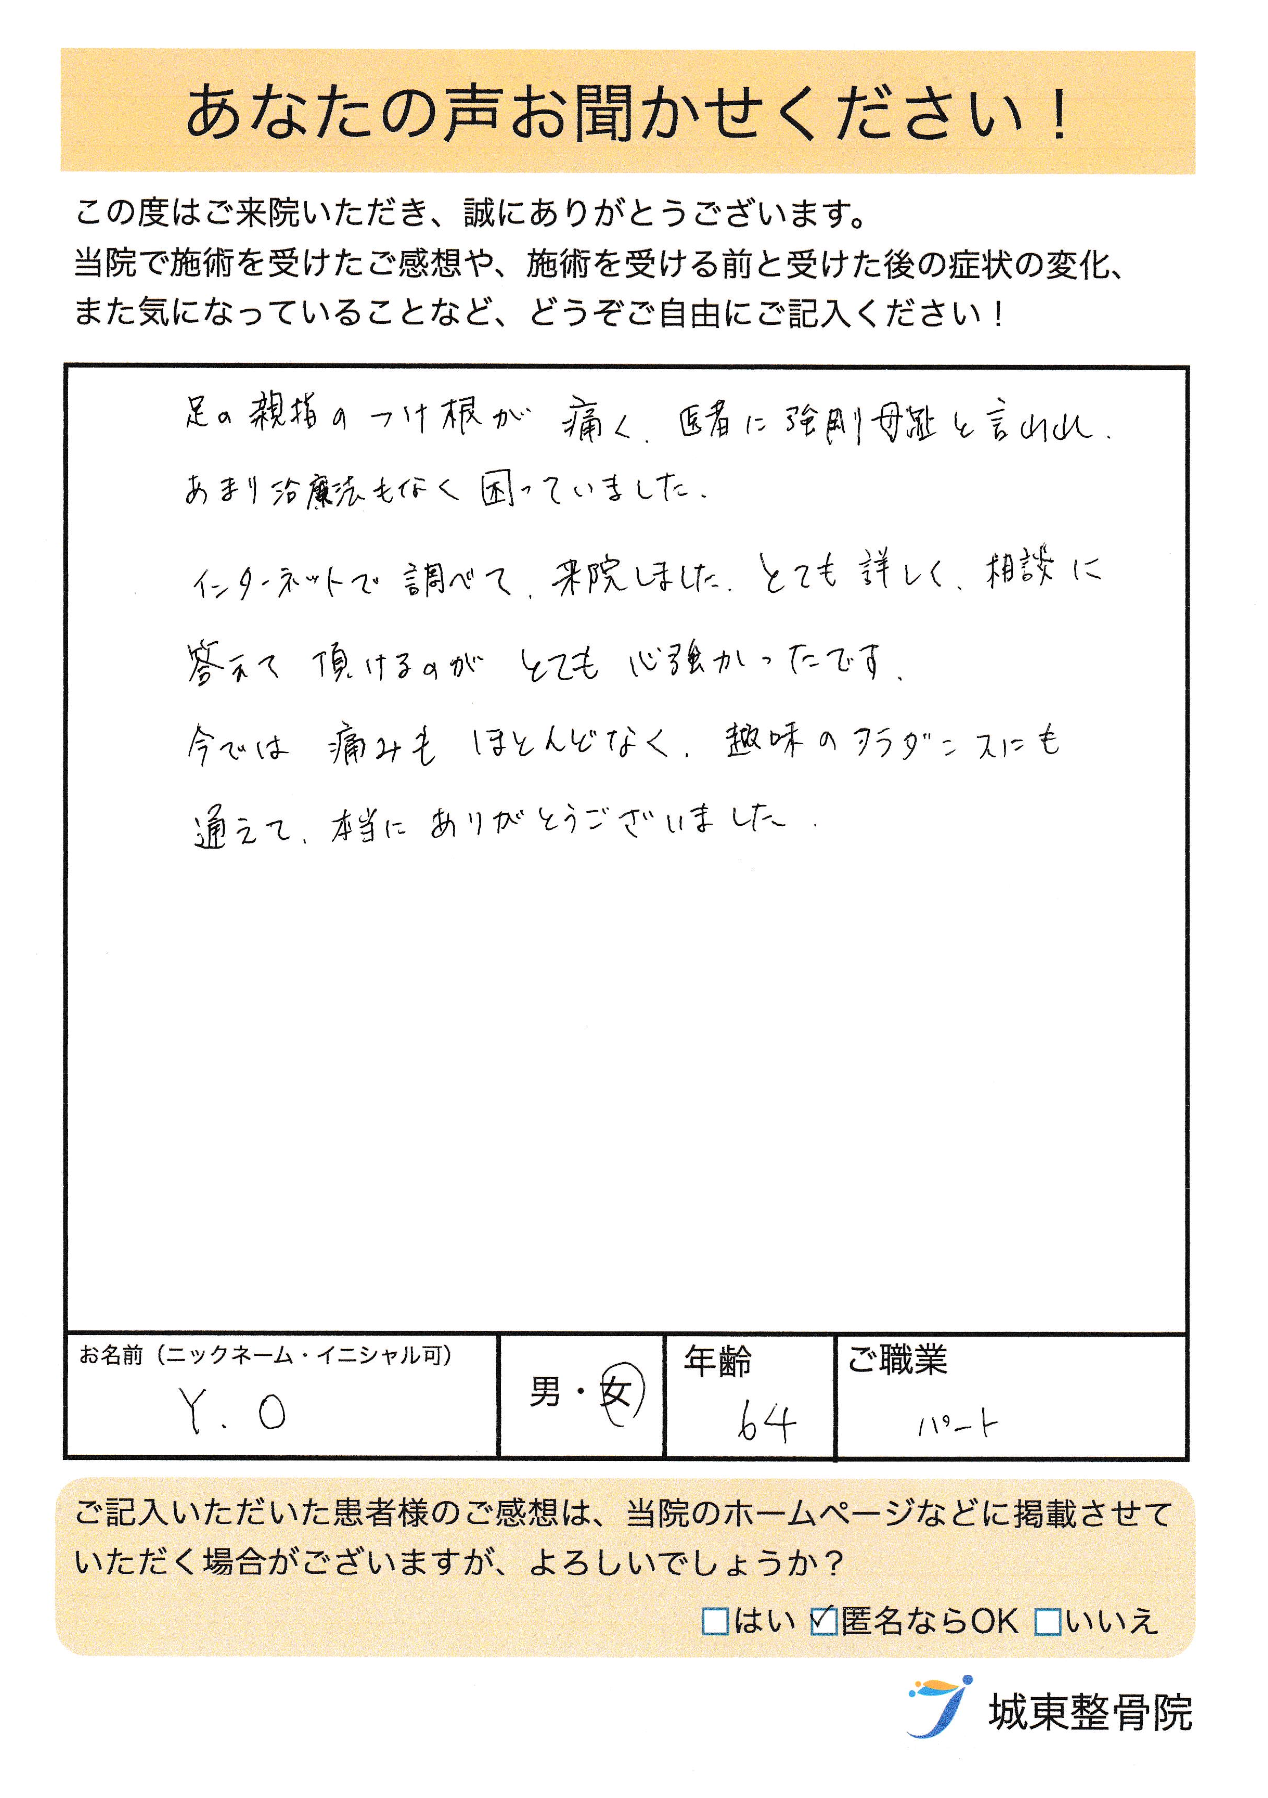 あなたの声お聞かせください！
この度はご来院いただき、誠にありがとうございます。
当院で施術を受けたご感想や、施術を受ける前と受けた後の症状の変化、
また気になっていることなど、どうぞご自由にご記入ください！
足の親指のつけ根が 痛く、医者に強剛母趾と言われ、
あまり治療法もなく困っていました。
インターネットで調べて、来院しました。とても詳しく、相談に
答えて頂けるのが とても心強かったです。
今では 痛みも ほとんどなく、趣味のフラダンスにも
通えて、本当に ありがとうございました。
お名前（ニックネーム・イニシャル可）
Y.O
男・女
年齢
64
ご職業
パート
ご記入いただいた患者様のご感想は、当院のホームページなどに掲載させて
いただく場合がございますが、よろしいでしょうか？
□はい ☑匿名ならOK □いいえ
城東整骨院